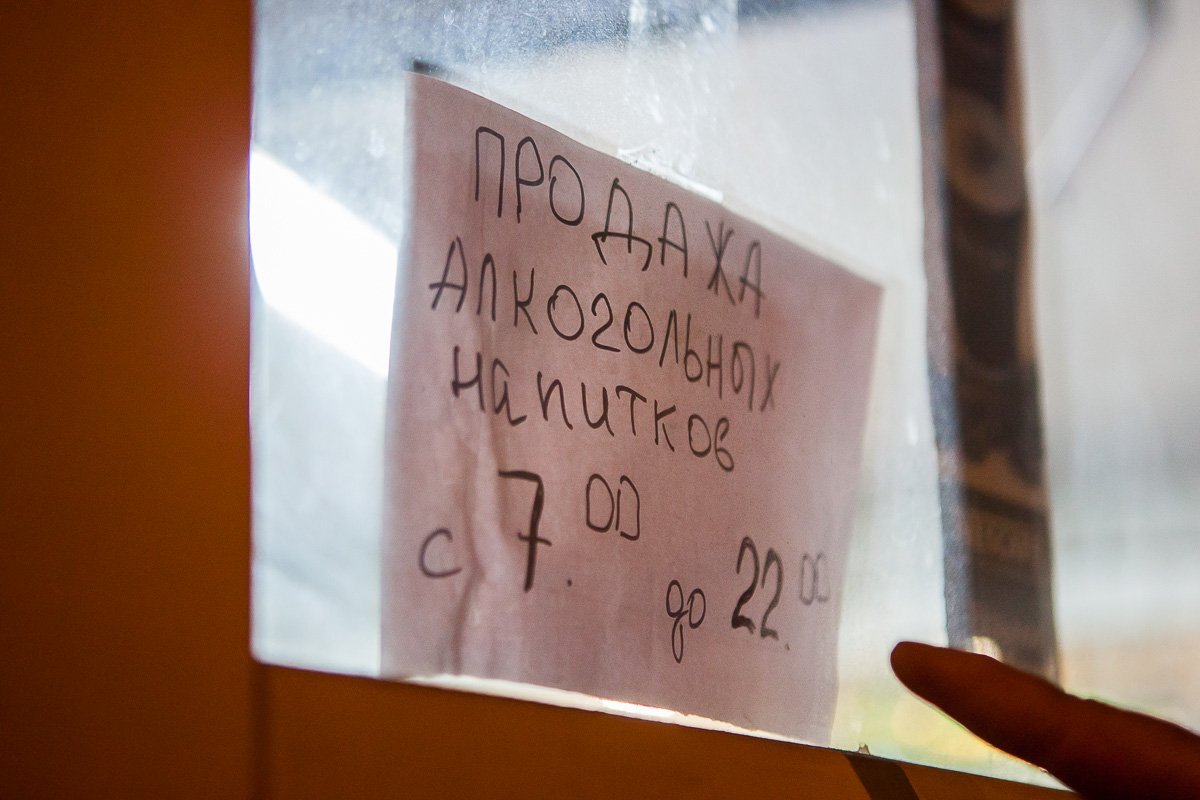 ПРОДАЖА
АЛКОГОЛЬНЫХ
напитков
с 7.00 до 22.00